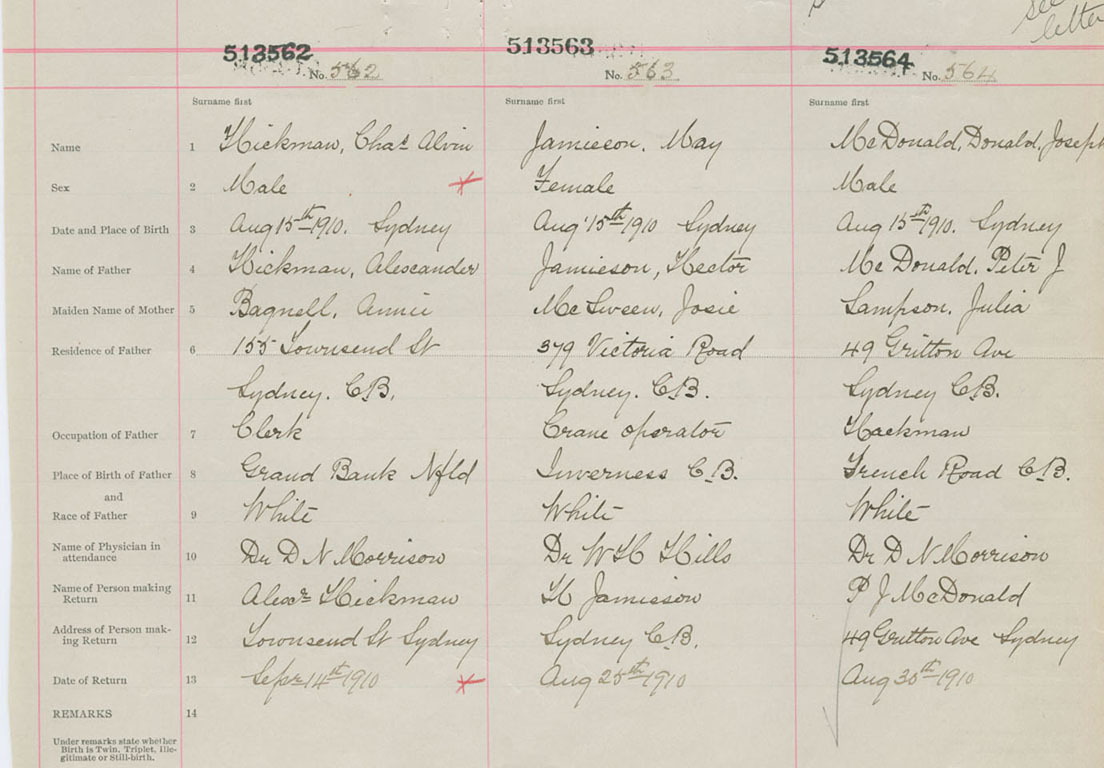 see
letter
513562 513563 513564
No. 562 No. 563 No. 564
Surname first Surname first Surname first
Name 1 Hickman, Chas Alvin Jamieson, May McDonald, Donald, Joseph
Sex 2 Male Female Male
Date and Place of Birth 3 Aug 15th 1910. Sydney Aug 15th 1910 Sydney Aug 15th 1910. Sydney
Name of Father 4 Hickman, Alexander Jamieson, Hector Mc Donald, Peter J
Maiden Name of Mother 5 Bagnell, Annie Mc Sween, Josie Sampson, Julia
Residence of Father 6 155 Townsend St 379 Victoria Road 49 Gritton Ave
Sydney. C.B. Sydney. C.B. Sydney C.B.
Occupation of Father 7 Clerk Crane operator Hackman
Place of Birth of Father 8 Grand Bank Nfld Inverness C.B. French Road C.B.
and
Race of Father 9 White White White
Name of Physician in
attendance 10 Dr D N Morrison Dr W H Hills Dr D N Morrison
Name of Person making
Return 11 Alexr Hickman H Jamieson P J McDonald
Address of Person mak-
ing Return 12 Townsend St Sydney Sydney C.B. 49 Gritton Ave Sydney
Date of Return 13 Sepr 14th 1910 Aug 25th 1910 Aug 30th 1910
REMARKS 14
Under remarks state whether
Birth is Twin, Triplet, Ille-
gitimate or Still-birth.